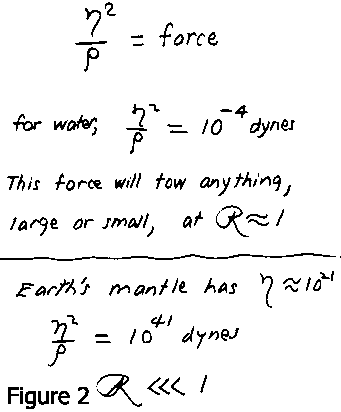 η²/ρ = force
for water, η²/ρ = 10⁻⁴ dynes
This force will tow anything,
large or small, at R ≈ 1
Earth's mantle has η ≈ 10²¹
η²/ρ = 10⁴¹ dynes
Figure 2 R <<< 1